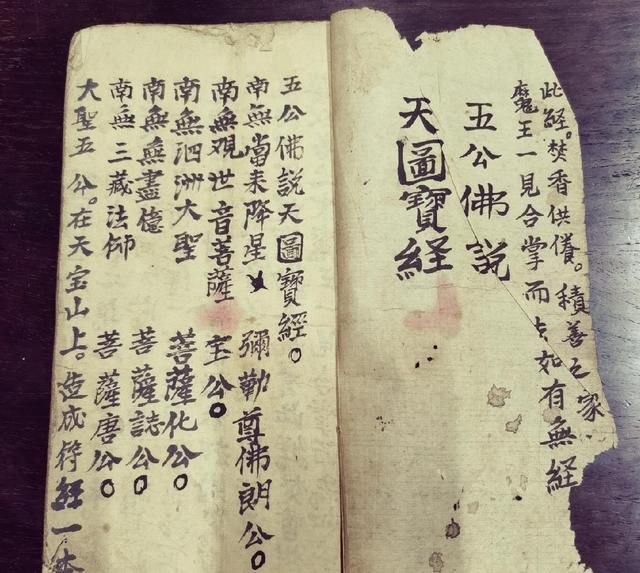 此経。焚香供養。積善之家
魔王一見合掌而去如有無経
五公佛説
天圖寶経
五公佛説天圖寶経。
南無當来降星 彌勒尊佛朗公。
南無观世音菩薩 宝公。
南無泗洲大聖 菩薩化公。
南無無盡億 菩薩誌公。
南無三藏法师 菩薩唐公。
大聖五公。在天宝山上。造成符経一本